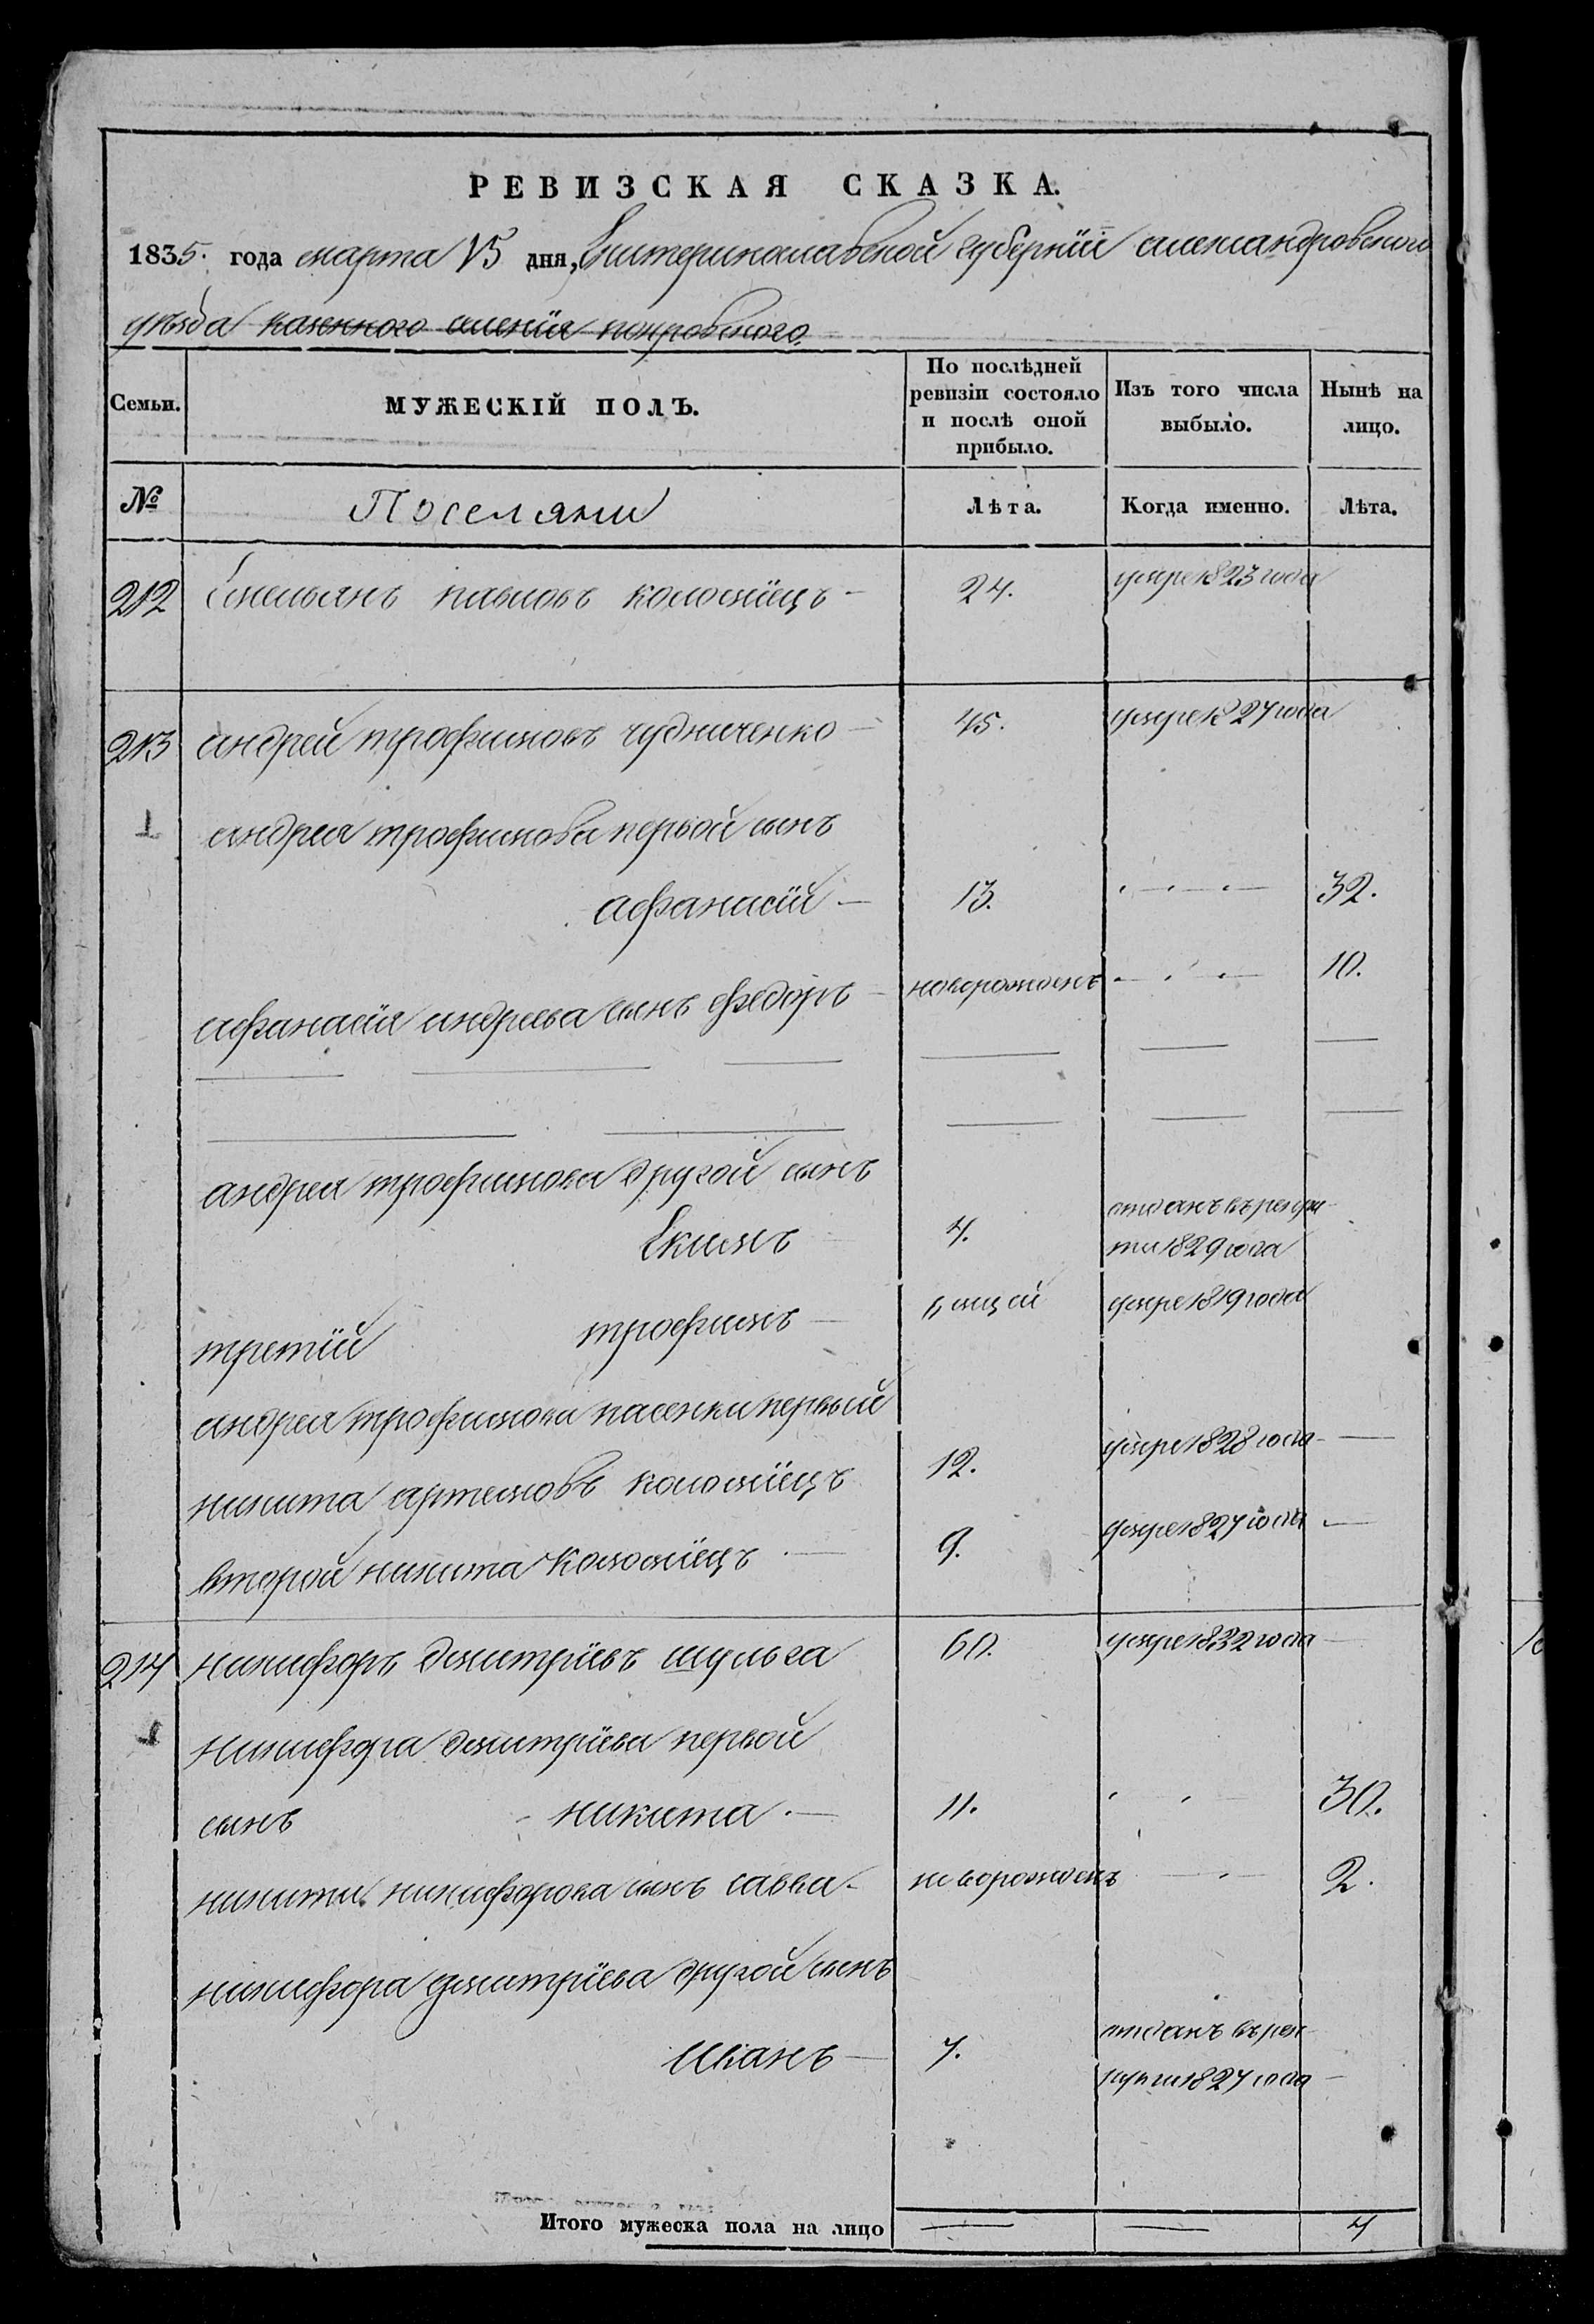 РЕВИЗСКАЯ СКАЗКА.
1835. года марта 15 дня, Екатеринославской губернïи александровского
уѣзда казенного имѣнïя покровского
Семьи. МУЖЕСКІЙ ПОЛЪ. По послѣдней ревизіи состояло и послѣ оной прибыло. Изъ того числа выбыло. Нынѣ на лицо.
№ Поселяни Лѣта. Когда именно. Лѣта.
212 Емельянъ павловъ коломïецъ 24. умре 1823 года
213 андрей трофимовъ чудниченко 45. умре 1827 года
андрея трофимова первой сынъ
афанасïй 13. 32.
афанасïя андреева сынъ федоръ новорожденъ 10.
андрея трофимова другой сынъ
Екимъ 4. отданъ въ рекру
ти 1829 года
третïй трофимъ умре 1819 года
андрея трофимова пасенки первый
никита артемовъ коломïецъ 12. умре 1828 года
второй никита коломïецъ 9. умре 1827 года
214 никифоръ дмитрïевъ шульга 60. умре 1832 года
никифора дмитрïева первой
сынъ никита 11. 30.
никиты никифорова сынъ савва новорожденъ 2.
никифора дмитрïева другой сынъ
Иванъ 7. отданъ въ рек
рути 1827 года
Итого мужеска пола на лицо 4